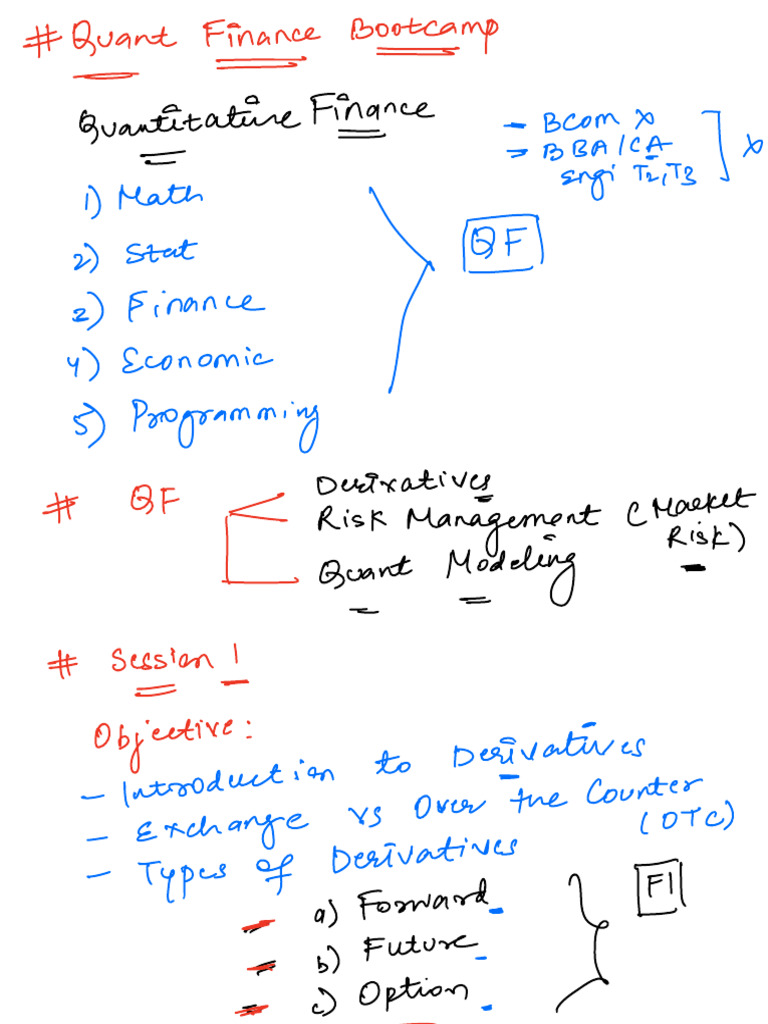 # Quant Finance Bootcamp
Quantitative Finance
- BCom X
- BBA/CA
engi T2,T3
] X
1) Math
2) Stat
2) Finance
4) Economic
5) Programming
QF
# QF
Derivatives
Risk Management (Market
Risk)
Quant Modeling
# Session 1
Objective:
- Introduction to Derivatives
- Exchange vs Over the Counter
(OTC)
- Types of Derivatives
a) Forward
b) Future
c) Option
FI